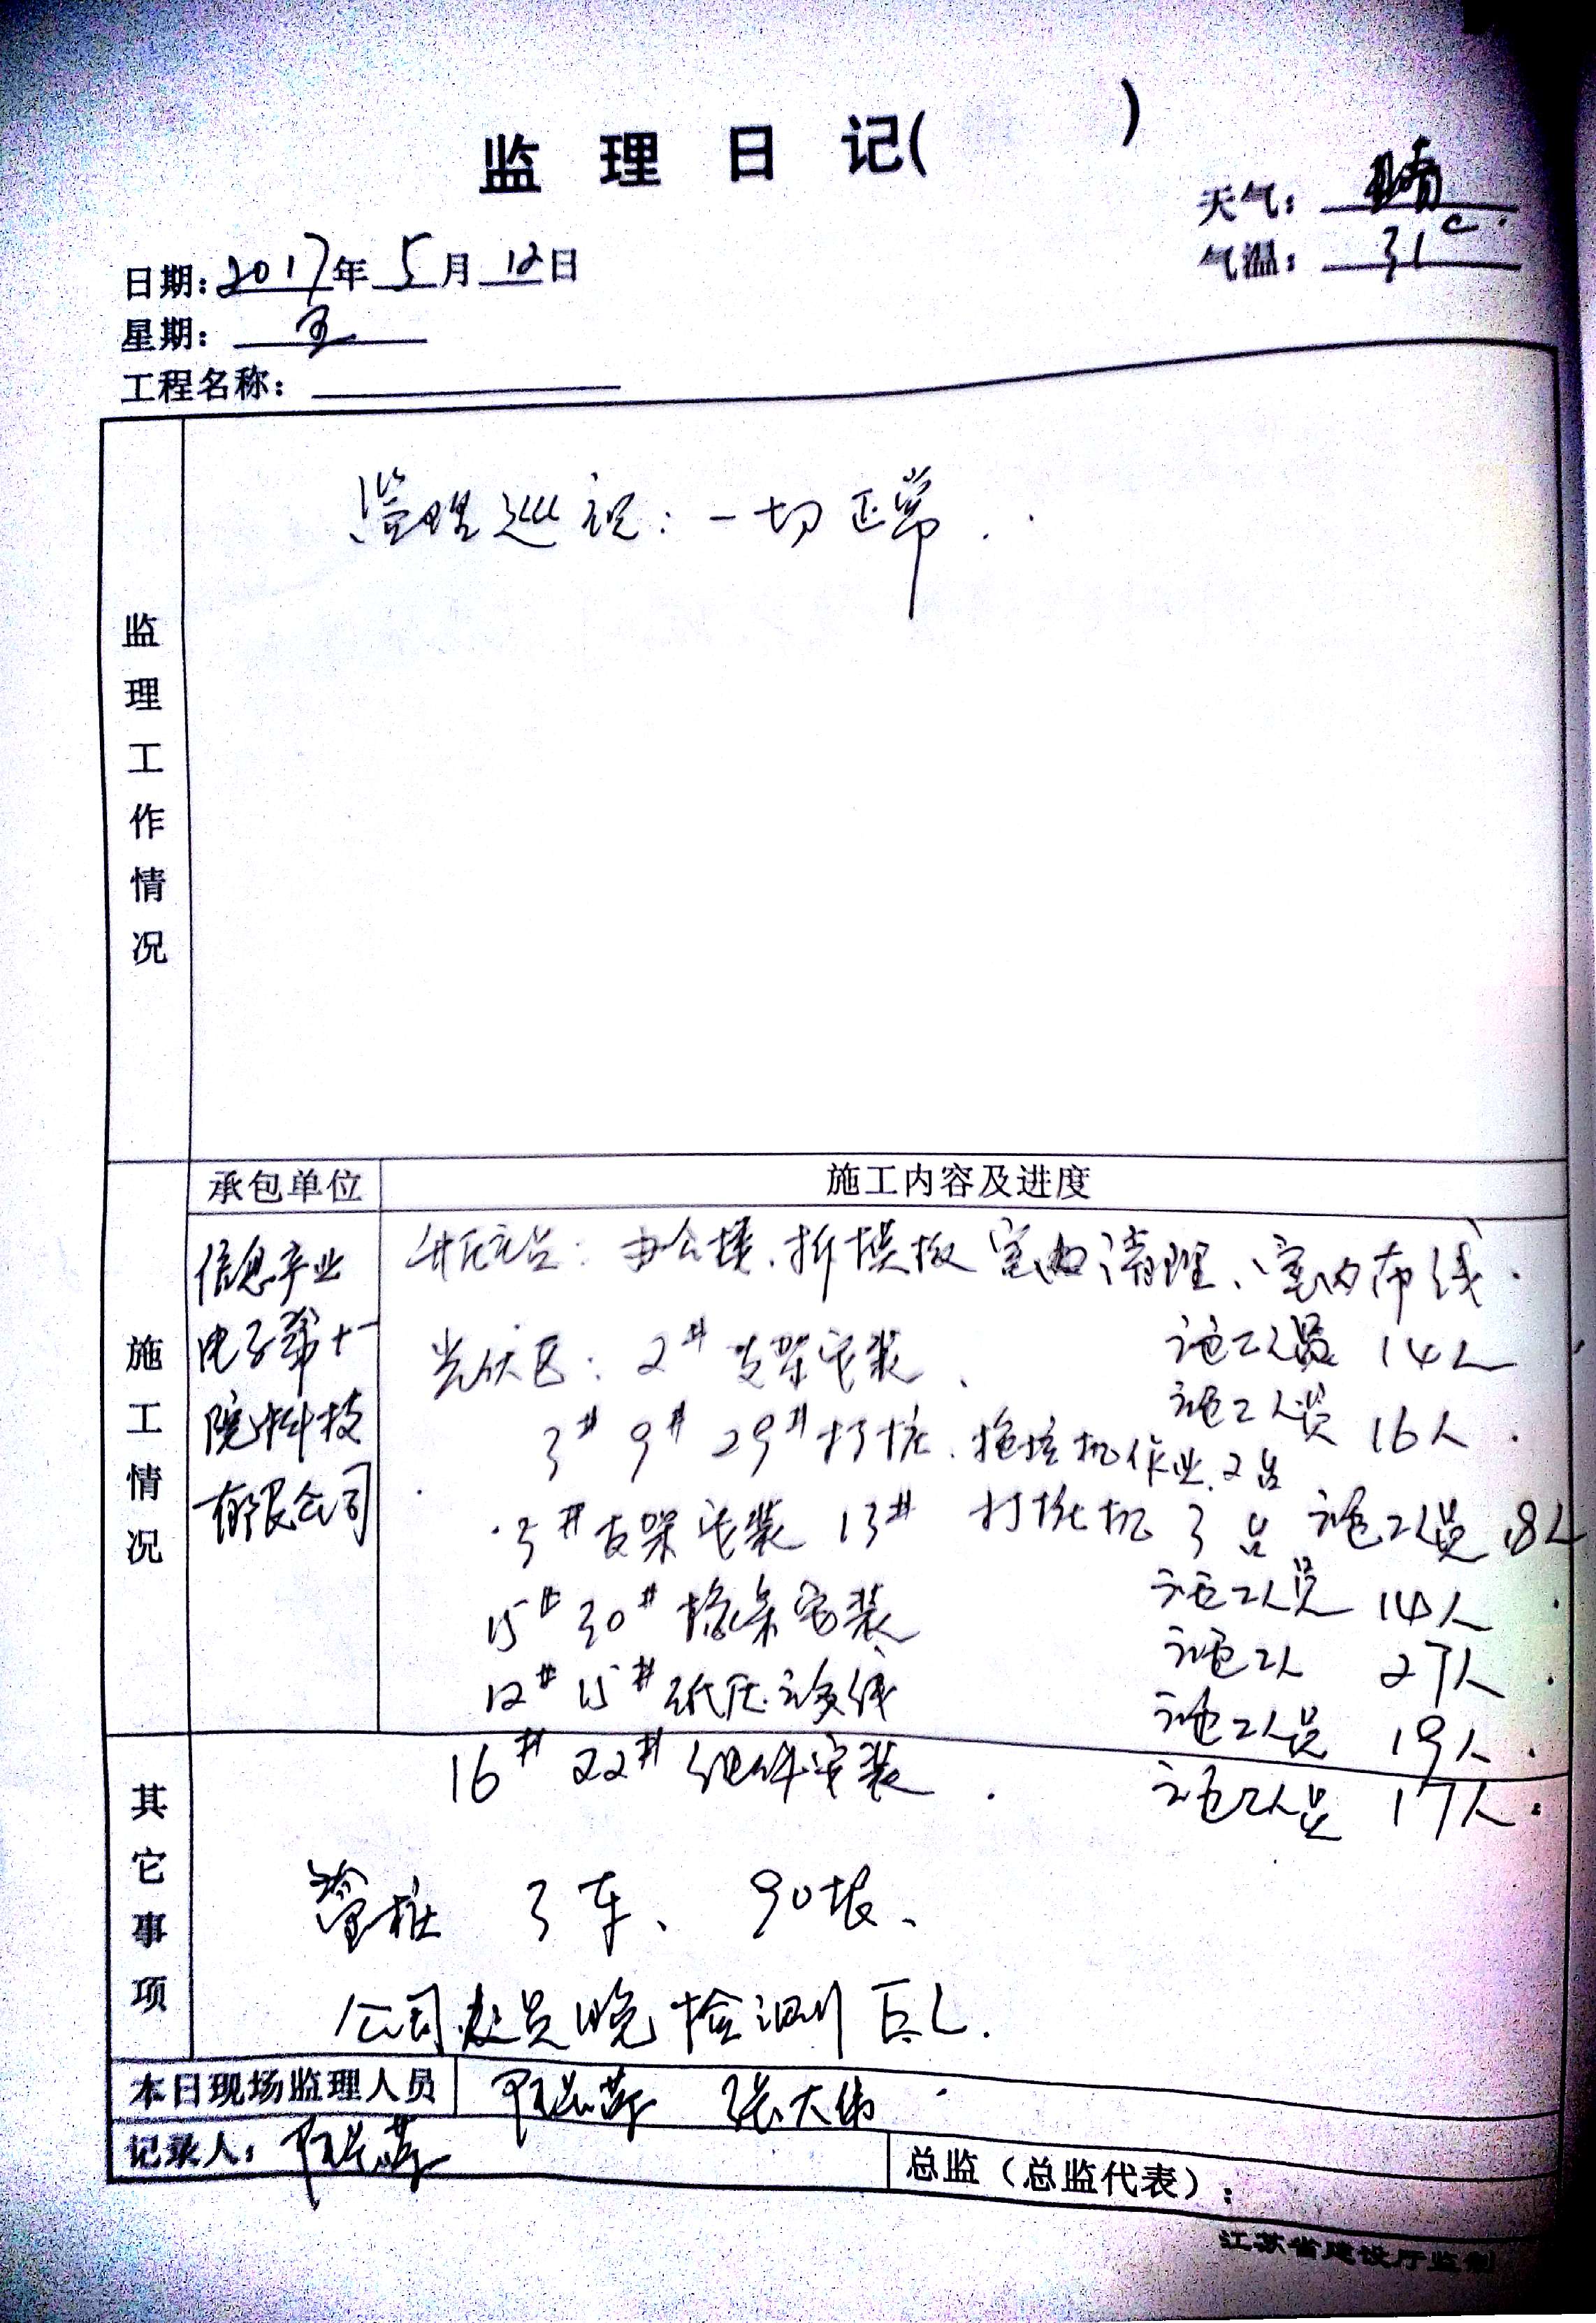 监理日记( )
天气: 晴
日期: 2017年 5月 12日
气温: 31℃.
星期: 五
工程名称:
监理工作情况
监理巡视: 一切正常.
施工情况
承包单位
施工内容及进度
信息产业
电子第十一
院科技
有限公司
升压站: 办公楼.拆模板 室内清理、室内布线.
施工人员 14人
光伏区: 2# 支架安装、
施工人员 16人.
3# 9# 29# 打桩. 挖机作业.2台
5#支架安装 13# 打桩机 3台 施工人员 18人
15# 30# 檩条安装
施工人员 14人.
12# 15# 低压
施工人 27人.
施工人员 19人.
16# 22# 组件安装.
施工人员 17人.
其它事项
管桩 3车、 90根、
公司 员晚检测 EL.
本日现场监理人员
张大伟
记录人:
总监(总监代表):
江苏省建设厅监制